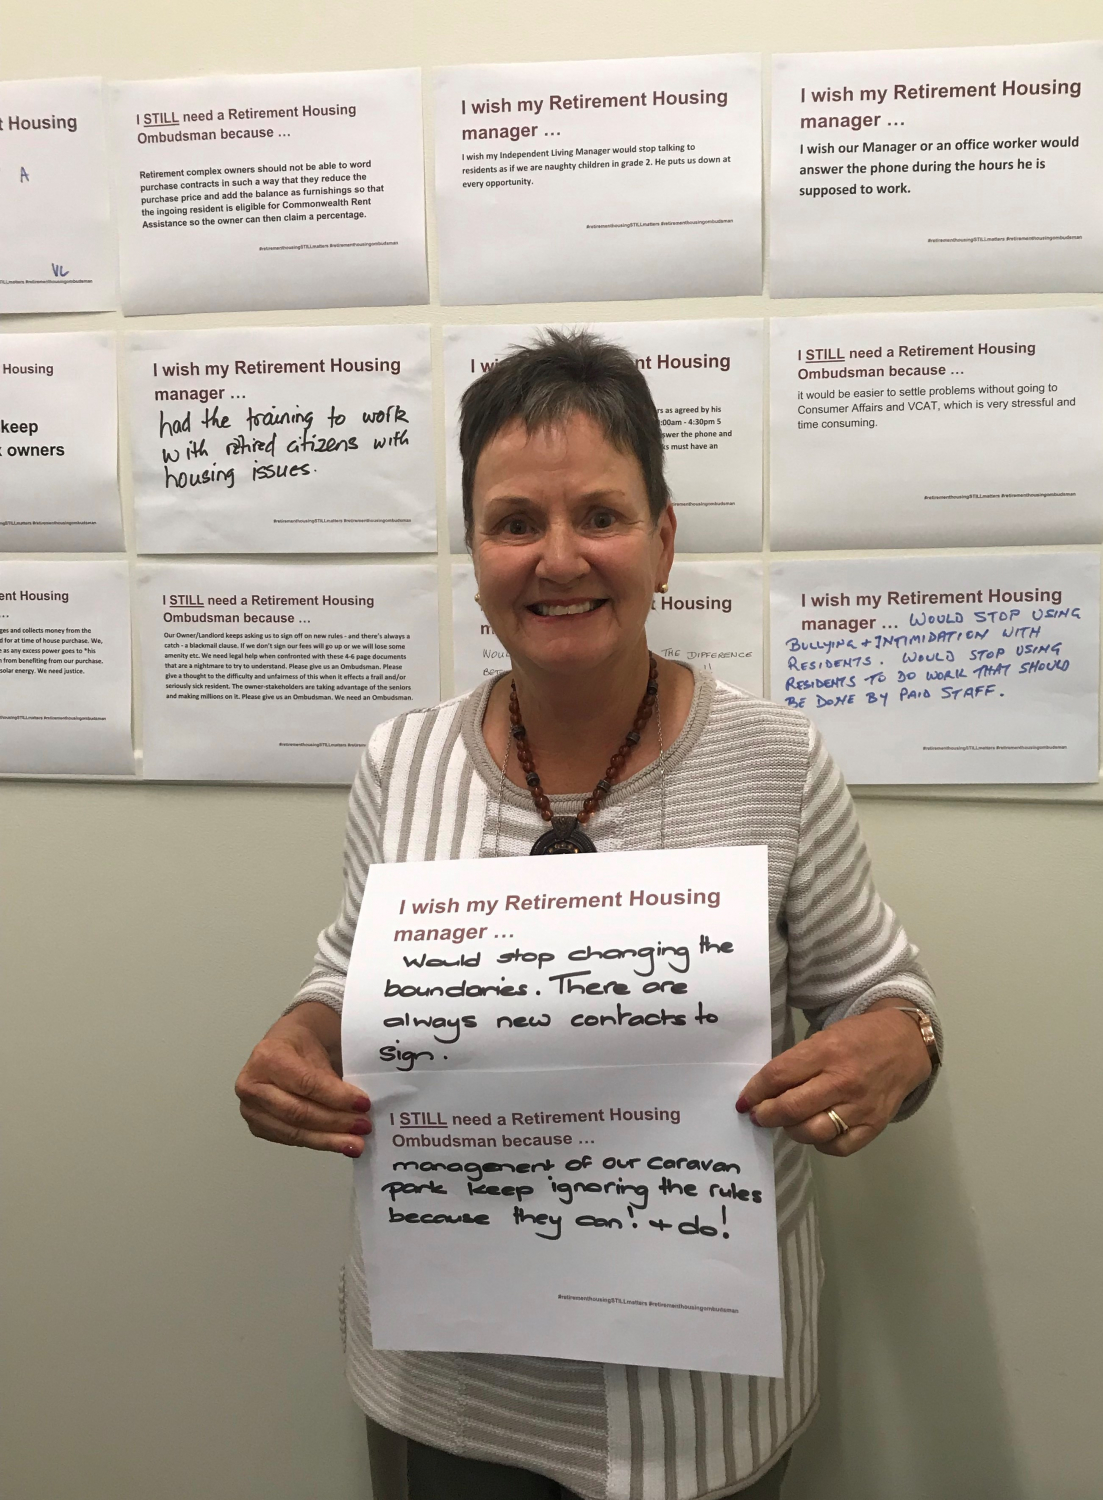 t Housing
A
VL
#retirementhousingombudsman
I STILL need a Retirement Housing
Ombudsman because …
Retirement complex owners should not be able to word
purchase contracts in such a way that they reduce the
purchase price and add the balance as furnishings so that
the ingoing resident is eligible for Commonwealth Rent
Assistance so the owner can then claim a percentage.
#retirementhousingSTILLmatters #retirementhousingombudsman
I wish my Retirement Housing
manager …
I wish my Independent Living Manager would stop talking to
residents as if we are naughty children in grade 2. He puts us down at
every opportunity.
#retirementhousingSTILLmatters #retirementhousingombudsman
I wish my Retirement Housing
manager …
I wish our Manager or an office worker would
answer the phone during the hours he is
supposed to work.
#retirementhousingSTILLmatters #retirementhousingombudsman
Housing
keep
owners
#retirementhousingombudsman
I wish my Retirement Housing
manager …
had the training to work
with retired citizens with
housing issues.
#retirementhousingSTILLmatters #retirementhousingombudsman
I wi
nt Housing
rs as agreed by his
:00am - 4:30pm 5
swer the phone and
ks must have an
#retirementhousingombudsman
I STILL need a Retirement Housing
Ombudsman because …
it would be easier to settle problems without going to
Consumer Affairs and VCAT, which is very stressful and
time consuming.
#retirementhousingSTILLmatters #retirementhousingombudsman
ent Housing
…
ges and collects money from the
d for at time of house purchase. We,
e as any excess power goes to "his
from benefiting from our purchase.
solar energy. We need justice.
#retirementhousingombudsman
I STILL need a Retirement Housing
Ombudsman because …
Our Owner/Landlord keeps asking us to sign off on new rules - and there's always a
catch - a blackmail clause. If we don't sign our fees will go up or we will lose some
amenity etc. We need legal help when confronted with these 4-6 page documents
that are a nightmare to try to understand. Please give us an Ombudsman. Please
give a thought to the difficulty and unfairness of this when it effects a frail and/or
seriously sick resident. The owner-stakeholders are taking advantage of the seniors
and making millions on it. Please give us an Ombudsman. We need an Ombudsman.
#retirementhousingSTILLmatters
t Housing
m
WOU
THE DIFFERENCE
BET
!!
I wish my Retirement Housing
manager … WOULD STOP USING
BULLYING + INTIMIDATION WITH
RESIDENTS. WOULD STOP USING
RESIDENTS TO DO WORK THAT SHOULD
BE DONE BY PAID STAFF.
#retirementhousingSTILLmatters #retirementhousingombudsman
I wish my Retirement Housing
manager …
Would stop changing the
boundaries. There are
always new contacts to
sign.
I STILL need a Retirement Housing
Ombudsman because …
management of our caravan
park keep ignoring the rules
because they can! + do!
#retirementhousingSTILLmatters #retirementhousingombudsman